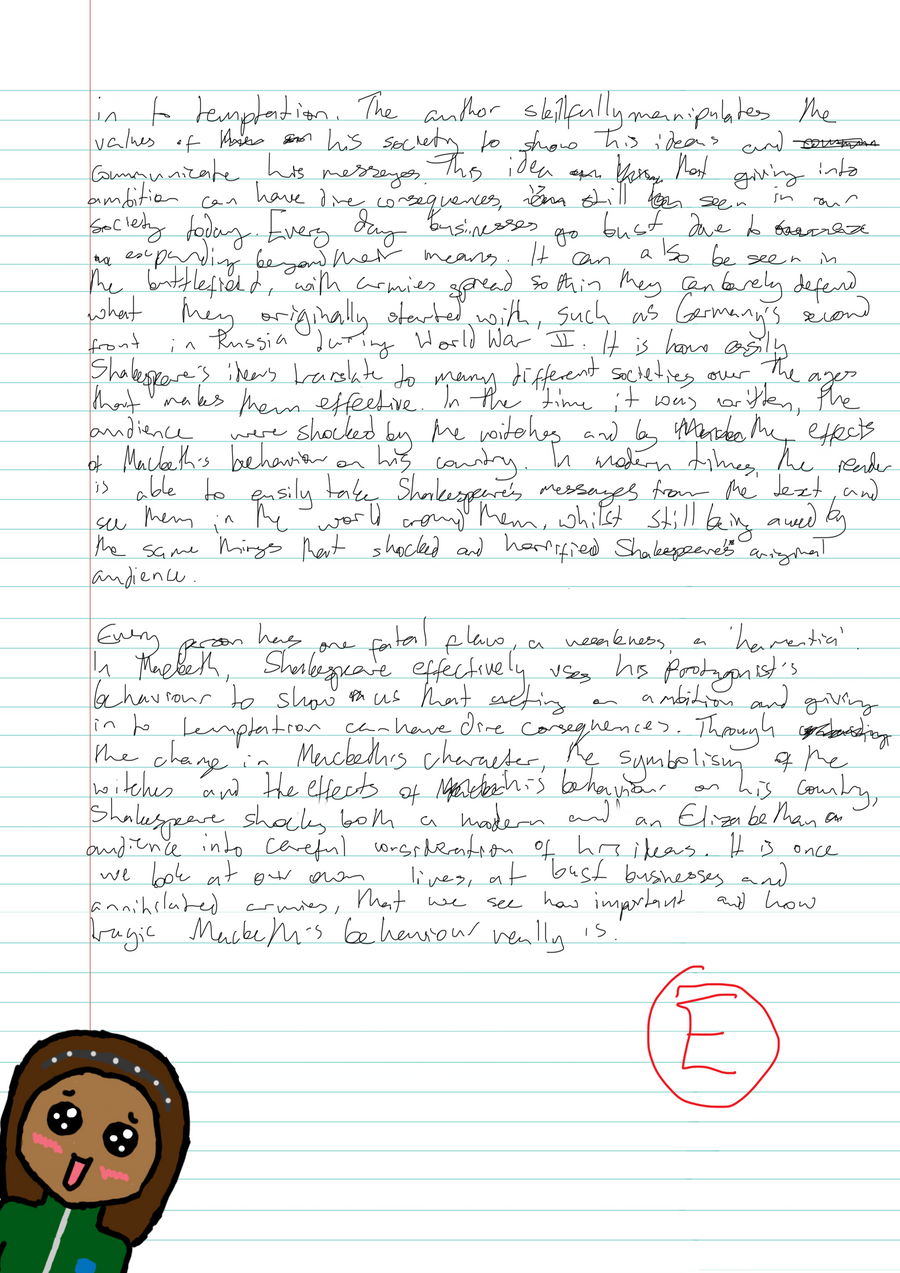 in to temptation. The author skillfully manipulates the
values of his society to show his ideas and
communicate his messages. This idea that giving into
ambition can have dire consequences, is still seen in our
society today. Every day businesses go bust due to
expanding beyond their means. It can also be seen in
the battlefield, with armies spread so thin they can barely defend
what they originally started with, such as Germany's second
front in Russia during World War II. It is how easily
Shakespeare's ideas translate to many different societies over the ages
that makes them effective. In the time it was written, the
audience were shocked by the witches and by the effects
of Macbeth's behaviour on his country. In modern times, the reader
is able to easily take Shakespeare's messages from the text, and
see them in the world around them, whilst still being awed by
the same things that shocked and horrified Shakespeare's original
audience.
Every person has one fatal flaw, a weakness, a 'hamentia'.
In Macbeth, Shakespeare effectively uses his protagonist's
behaviour to show us that acting on ambition and giving
in to temptation can have dire consequences. Through
the change in Macbeth's character, the symbolism of the
witches and the effects of his behaviour on his country,
Shakespeare shocks both a modern and an Elizabethan
audience into careful consideration of his ideas. It is once
we look at our own lives, at bust businesses and
annihilated armies, that we see how important and how
tragic Macbeth's behaviour really is.
E